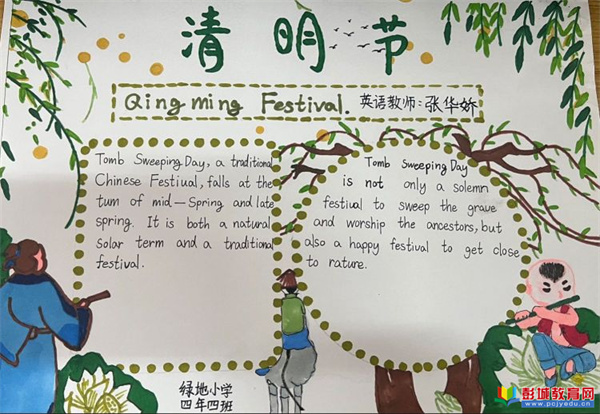 清明节
Qingming Festival. 英语教师：张华娇
Tomb Sweeping Day, a traditional
Chinese Festiual, falls at the
tum of mid—Spring and late
spring. It is both a natural
Solar term and a traditional
festival.
Tomb Sweeping Day
is not only a solemn
festiual to sweep the graue
and worship the ancestors, but
also a happy festival to get close
to rature.
绿地小学
四年四班
彭城教育网
www.pcjyedu.cn